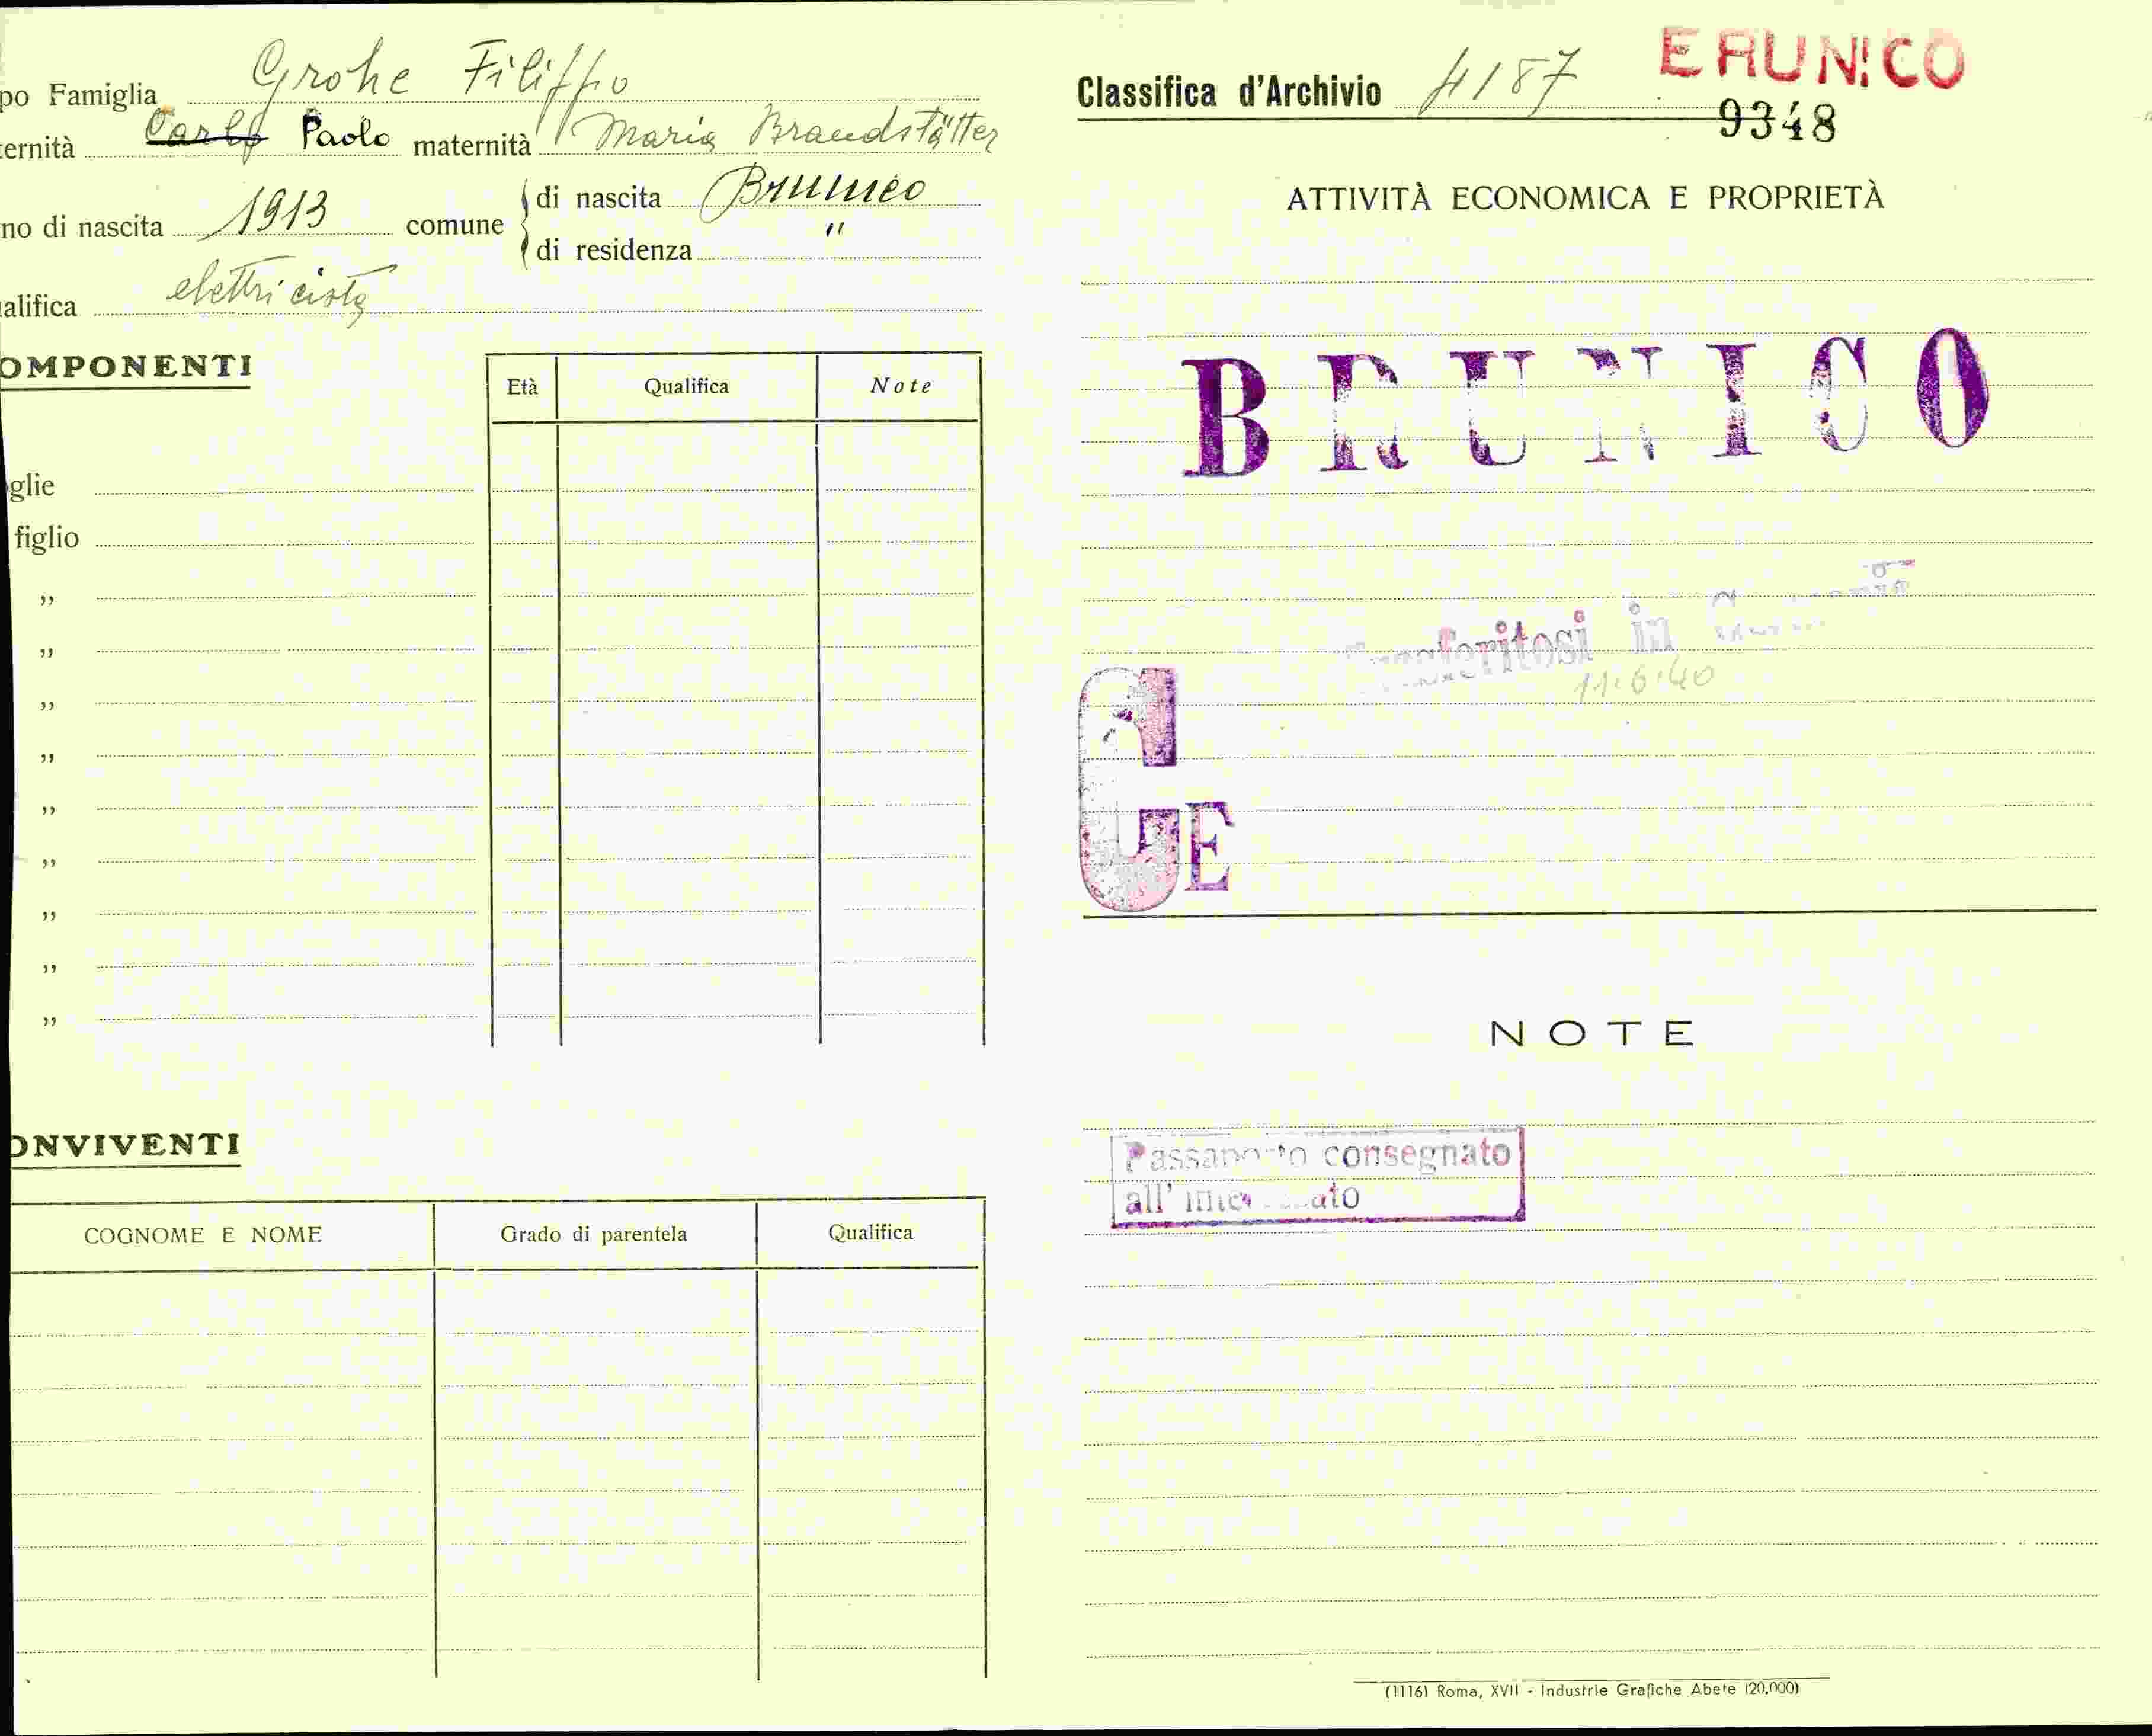 po Famiglia Grohe Filippo
ernità Carlo Paolo maternità Maria Brandstätter
no di nascita 1913 comune di nascita Brunico
di residenza "
alifica elettricista
OMPONENTI
Età Qualifica Note
glie
figlio
"
"
"
"
"
"
"
"
"
ONVIVENTI
COGNOME E NOME Grado di parentela Qualifica
Classifica d'Archivio 4187
BRUNICO
9348
ATTIVITÀ ECONOMICA E PROPRIETÀ
BRUNICO
Trasferitosi in
11.6.40
GE
NOTE
Passaporto consegnato
all'interessato
(11161 Roma, XVII - Industrie Grafiche Abete (20.000)